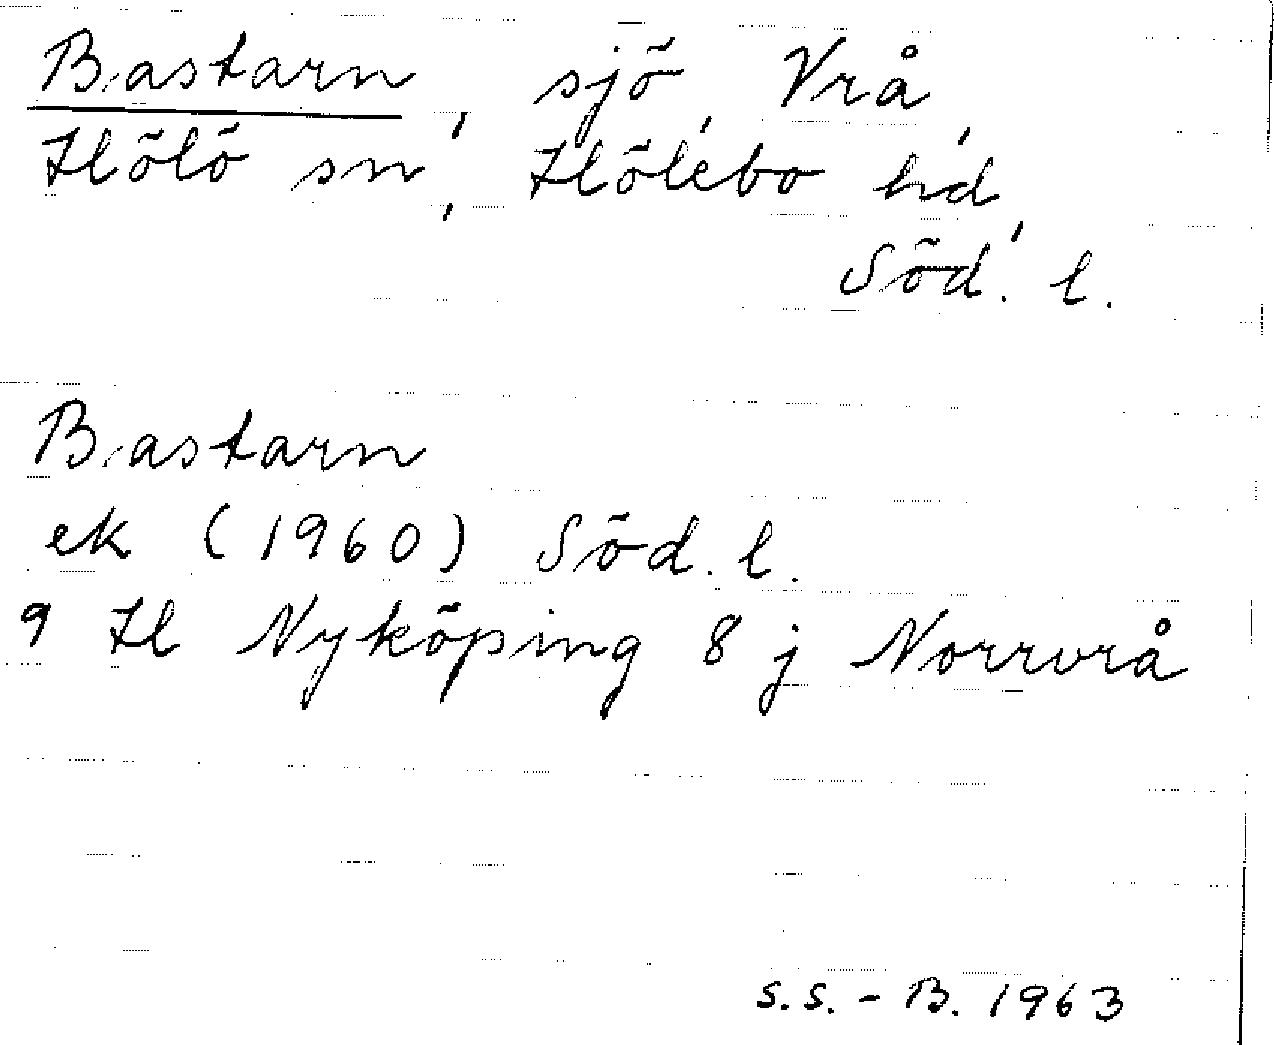 Bastarn, sjö, Vrå,
Hölö sn, Hölebo hd,
Söd. l.
Bastarn
ek (1960) Söd. l.
9 H Nyköping 8 j Norrvrå
S.S.-B. 1963